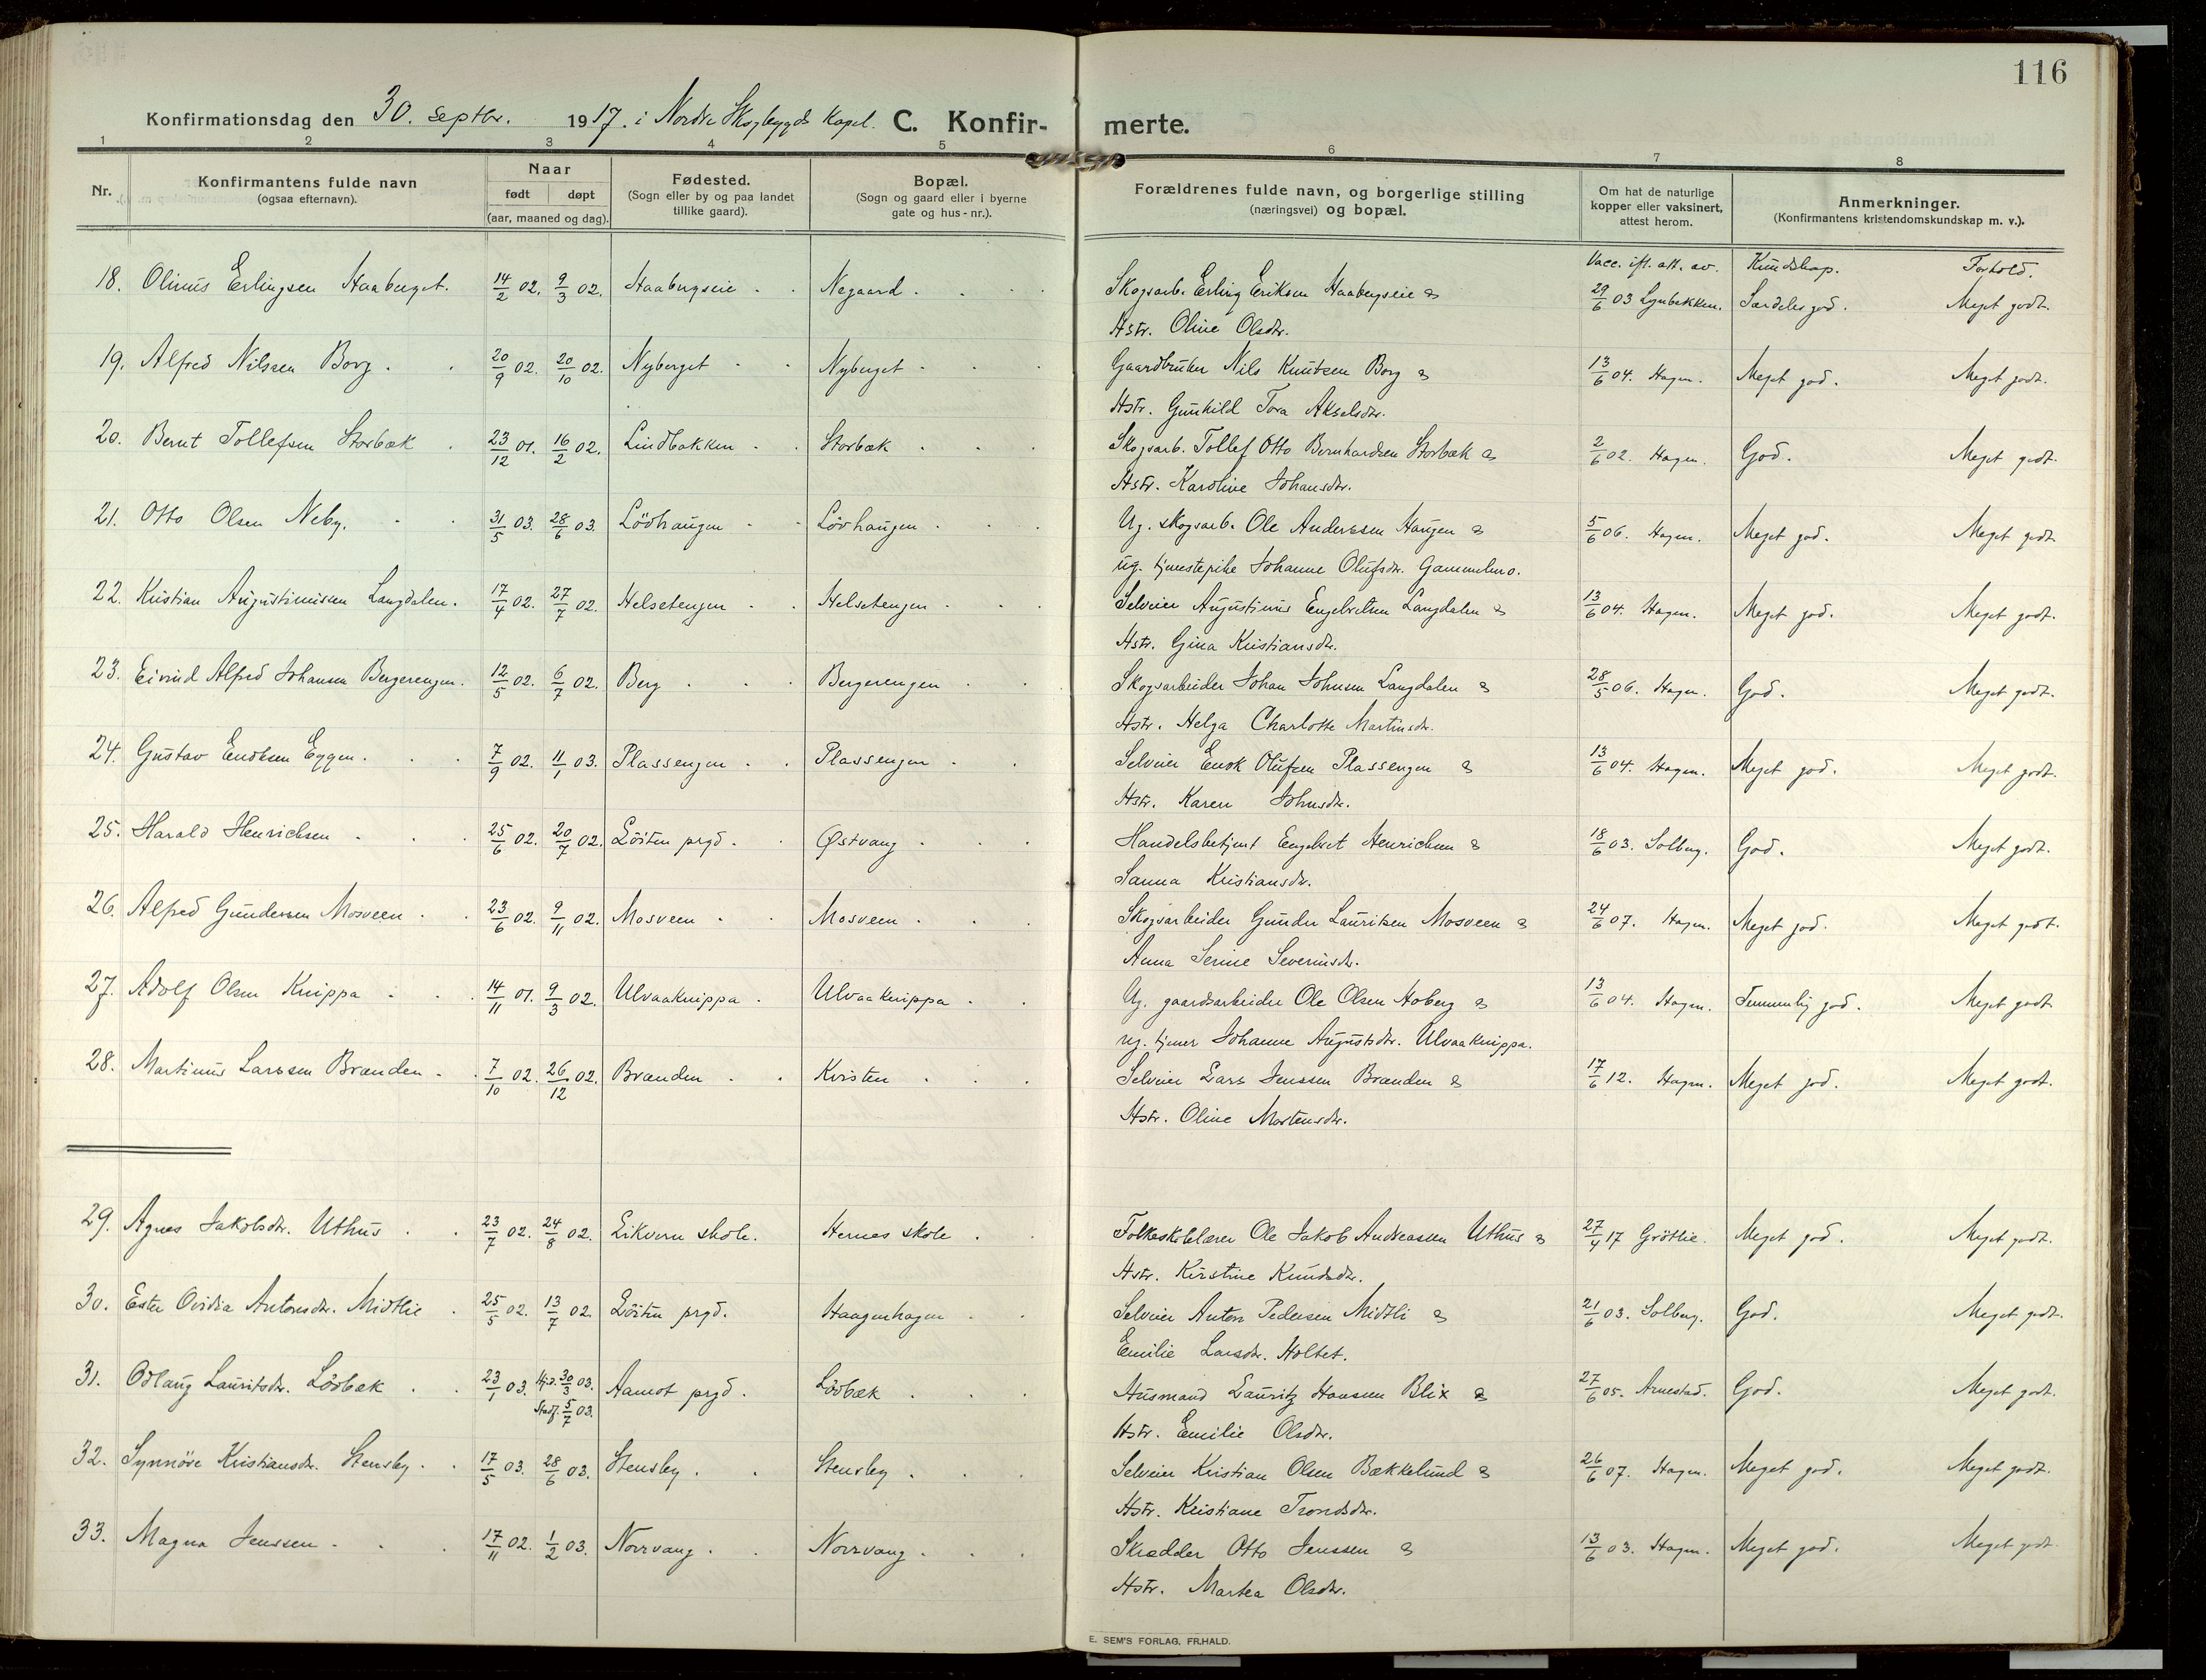 116
Konfirmationsdag den 30. septbr. 1917. i Nordre Skogbygds Kapel. C. Konfirmerte.
1 2 3 4 5 6 7 8
Nr. Konfirmantens fulde navn (ogsaa efternavn). Naar født døpt (aar, maaned og dag). Fødested. (Sogn eller by og paa landet tillike gaard). Bopæl. (Sogn og gaard eller i byerne gate og hus-nr.). Forældrenes fulde navn, og borgerlige stilling (næringsvei) og bopæl. Om hat de naturlige kopper eller vaksinert, attest herom. Anmerkninger. (Konfirmantens kristendomskundskap m. v.).
Vacc. ifl. att. av. Kundskap. Forhold.
18. Olinus Erlingsen Haaberget. 14/2 02. 9/3 02. Haabergseie Negaard Skogsarb. Erling Eriksen Haabergseie & 29/6 03 Lynbekken. Særdeles god. Meget godt.
Hstr. Oline Olsdtr.
19. Alfred Nilssen Borg. 20/9 02. 20/10 02. Nyberget Nyberget Gaardbruker Nils Knutsen Borg & 13/6 04. Hagen. Meget god. Meget godt.
Hstr. Gunhild Tora Akselsdtr.
20. Bernt Tollefsen Storbæk 23/12 01. 16/2 02. Lindbakken Storbæk Skogsarb. Tollef Otto Bernhardsen Storbæk & 2/6 02. Hagen. God. Meget godt.
Hstr. Karoline Johansdtr.
21. Otto Olsen Neby. 31/5 03. 28/6 03. Lövhaugen Lövhaugen Ug. skogsarb. Ole Anderssen Haugen & 5/6 06. Hagen. Meget god. Meget godt
ug. tjenestepike Johanne Olufsdtr. Gammelmo.
22. Kristian Augustinussen Langdalen. 17/4 02. 27/7 02. Helsetengen Helsetengen Selveier Augustinus Engebretsen Langdalen & 13/6 04. Hagen. Meget god. Meget godt.
Hstr. Gina Kristiansdtr.
23. Eivind Alfred Johansen Bergerengen. 12/5 02. 6/7 02. Berg Bergerengen Skogsarbeider Johan Johnsen Langdalen & 28/5 06. Hagen. God. Meget godt.
Hstr. Helga Charlotte Martinsdtr.
24. Gustav Enoksen Eggen. 7/9 02. 11/1 03. Plassengen Plassengen Selveier Enok Olufsen Plassengen & 13/6 04. Hagen. Meget god. Meget godt.
Hstr. Karen Johnsdtr.
25. Harald Henrichsen 25/6 02. 20/7 02. Löiten prgd. Østvang Handelsbetjent Engebret Henrichsen & 18/6 03. Solberg. God. Meget godt.
Sanna Kristiansdtr.
26. Alfred Gundersen Mosveen 23/6 02. 9/11 02. Mosveen Mosveen Skogsarbeider Gunder Lauritsen Mosveen & 24/6 07. Hagen. Meget god. Meget godt.
Anna Serine Severinsdtr.
27. Adolf Olsen Knippa 14/11 01. 9/3 02. Ulvaaknippa Ulvaaknippa Ug. gaardsarbeider Ole Olsen Hoberg & 13/6 04. Hagen. Temmelig god. Meget godt
ug. tjener Johanne Augustsdtr. Ulvaaknippa.
28. Martinus Larssen Brænden 7/10 02. 26/12 02. Brænden Kvisten Selveier Lars Jenssen Brænden & 17/6 12. Hagen. Meget god. Meget godt.
Hstr. Oline Mortensdtr.
29. Agnes Jakobsdtr. Uthus 23/7 02. 24/8 02. Eikvern skole. Hernes skole Folkeskolelærer Ole Jakob Andreassen Uthus & 27/4 17 Grötlie. Meget god. Meget godt.
Hstr. Kirstine Knudsdtr.
30. Ester Ovidia Antonsdtr. Midtlie 25/5 02. 13/7 02. Löiten prgd. Haagenhagen Selveier Anton Pedersen Midtli & 21/6 03. Solberg. God. Meget godt.
Emilie Larsdtr. Holtet.
31. Odlaug Lauritsdtr. Lövbæk 23/1 03. Hjd. 30/3 03. Stadf. 5/7 03. Aamot prgd. Lövbæk Husmand Lauritz Hansen Blix & 27/6 05. Arnestad. God. Meget godt.
Hstr. Emilie Olsdtr.
32. Synnöve Kristiansdtr. Stensby. 17/5 03. 28/6 03. Stensby. Stensby Selveier Kristian Olsen Bækkelund & 26/6 07. Hagen. Meget god. Meget godt.
Hstr. Kristiane Trondsdtr.
33. Magna Jenssen 17/11 02. 1/2 03. Norvang Norvang Skrædder Otto Jenssen & 13/6 03. Hagen. Meget god. Meget godt
Hstr. Martea Olsdtr.
E. SEM'S FORLAG, FR.HALD.